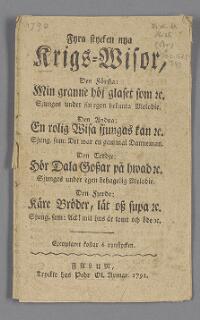 1790
Fyra stycken nya
Krigs-Wisor,
Den Första:
Min granne höf glaset som ꝛc.
Sjunges under sin egen bekanta Melodie.
Den Andra:
En rolig Wisa sjungas kan ꝛc.
Sjung. som: Det war en gammal Danneman.
Den Tredje:
Hör Dala Goßar på hwad ꝛc.
Sjunges under egen behagelig Melodie.
Den Fjerde:
Käre Bröder, låt oß supa ꝛc.
Sjung. som: Ack! mit hus är tomt och öde ꝛc.
Exemplaret kostar 6 runstycken.
FALUN,
Tryckte hos Pehr Ol. Axmar. 1791.